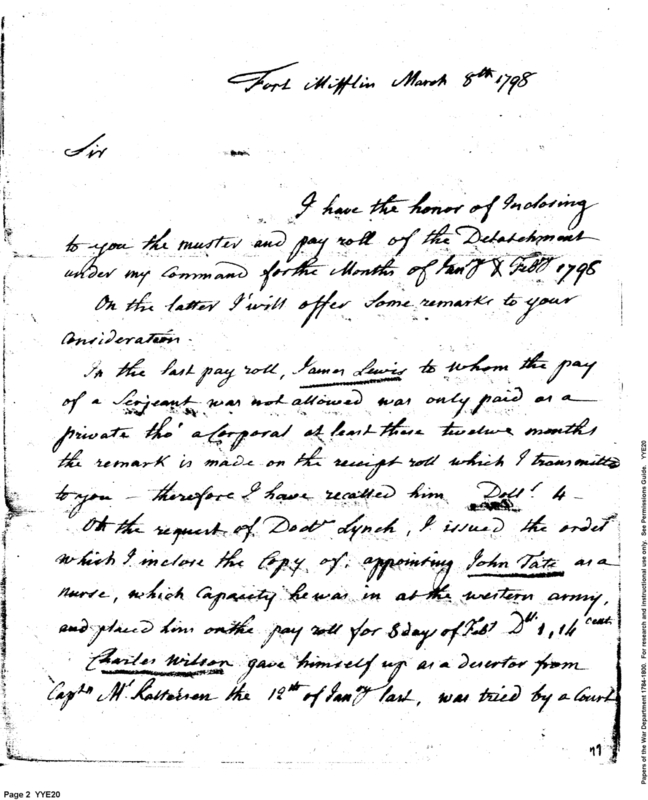 Fort Mifflin March 8th 1798
Sir
I have the honor of Inclosing
to you the muster and pay roll of the Detatchment
under my Command for the Months of Jany & Feby 1798
On the latter I will offer some remarks to your
Consideration.
In the last pay roll, James Lewis to whom the pay
of a Serjeant was not allowed was only paid as a
private tho' a Corporal at least these twelve months
the remark is made on the receipt roll which I transmitted
to you – therefore I have recalled him Dolls. 4 –
On the request of Doctr Lynch, I issued the order
which I inclose the Copy of, appointing John Tate as a
nurse, which Capacity he was in at the western army,
and placed him on the pay roll for 8 days of Feby Dlls. 1,14 cent.
Charles Wilson gave himself up as a desertor from
Captn the 12th of Jany last, was tried by a Court
77
Page 2 YYE20
Papers of the War Department 1784-1800. For research and instructional use only. See Permissions Guide. YYE20